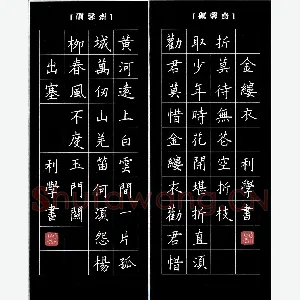 勸君莫惜金縷衣勸君惜
取少年時花開堪折直須
折莫待無花空折枝
金縷衣 利學書
黃河遠上白雲間一片孤
城萬仞山羌笛何須怨楊
柳春風不度玉門關
出塞 利學書